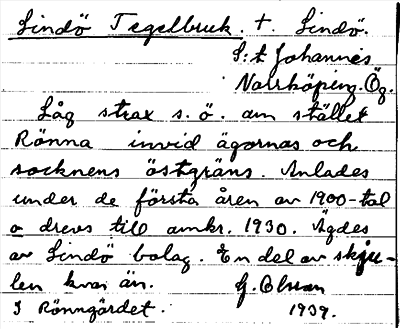 Lindö Tegelbruk. t. Lindö.
S:t Johannes
Norrköping. Ög.
Låg strax s.ö. om stället
Rönna invid ägornas och
socknens östgräns. Anlades
under de första åren av 1900-tal
o drevs till omkr. 1930. Ägdes
av Lindö bolag. En del av skju-
len kvar än. G. Olson
I Rönngärdet. 1939.